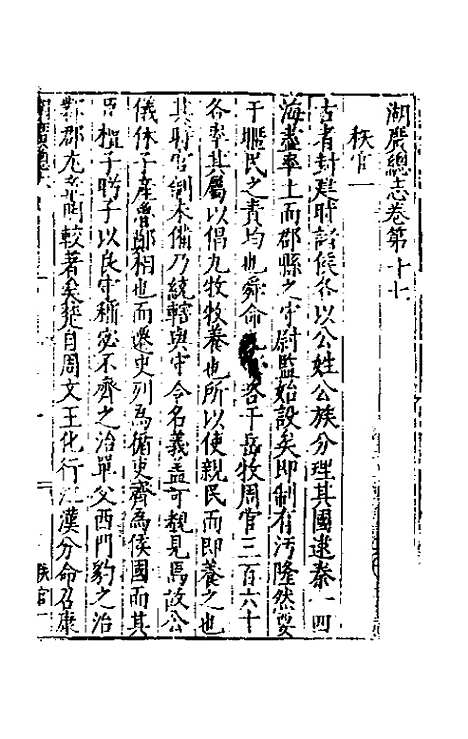 湖廣總志卷第十七
秩官一
古者封建時諸侯各以公姓公族分理其國逮秦一四
海盡率土而郡縣之守尉監始設矣即制有污隆然要
于釐民之責均也舜命咨于岳牧周官三百六十
各率其屬以倡九牧牧養也所以使親民而即養之也
其時官制未備乃統轄與守令名義盖可覩見焉故公
儀休子產魯鄭相也而遷史列為循吏齊為侯國而其
臣子時子以良守稱宓不齊之治單父西門豹之治
鄴郡尤章明較著矣楚自周文王化行江漢分命召康
秩官一